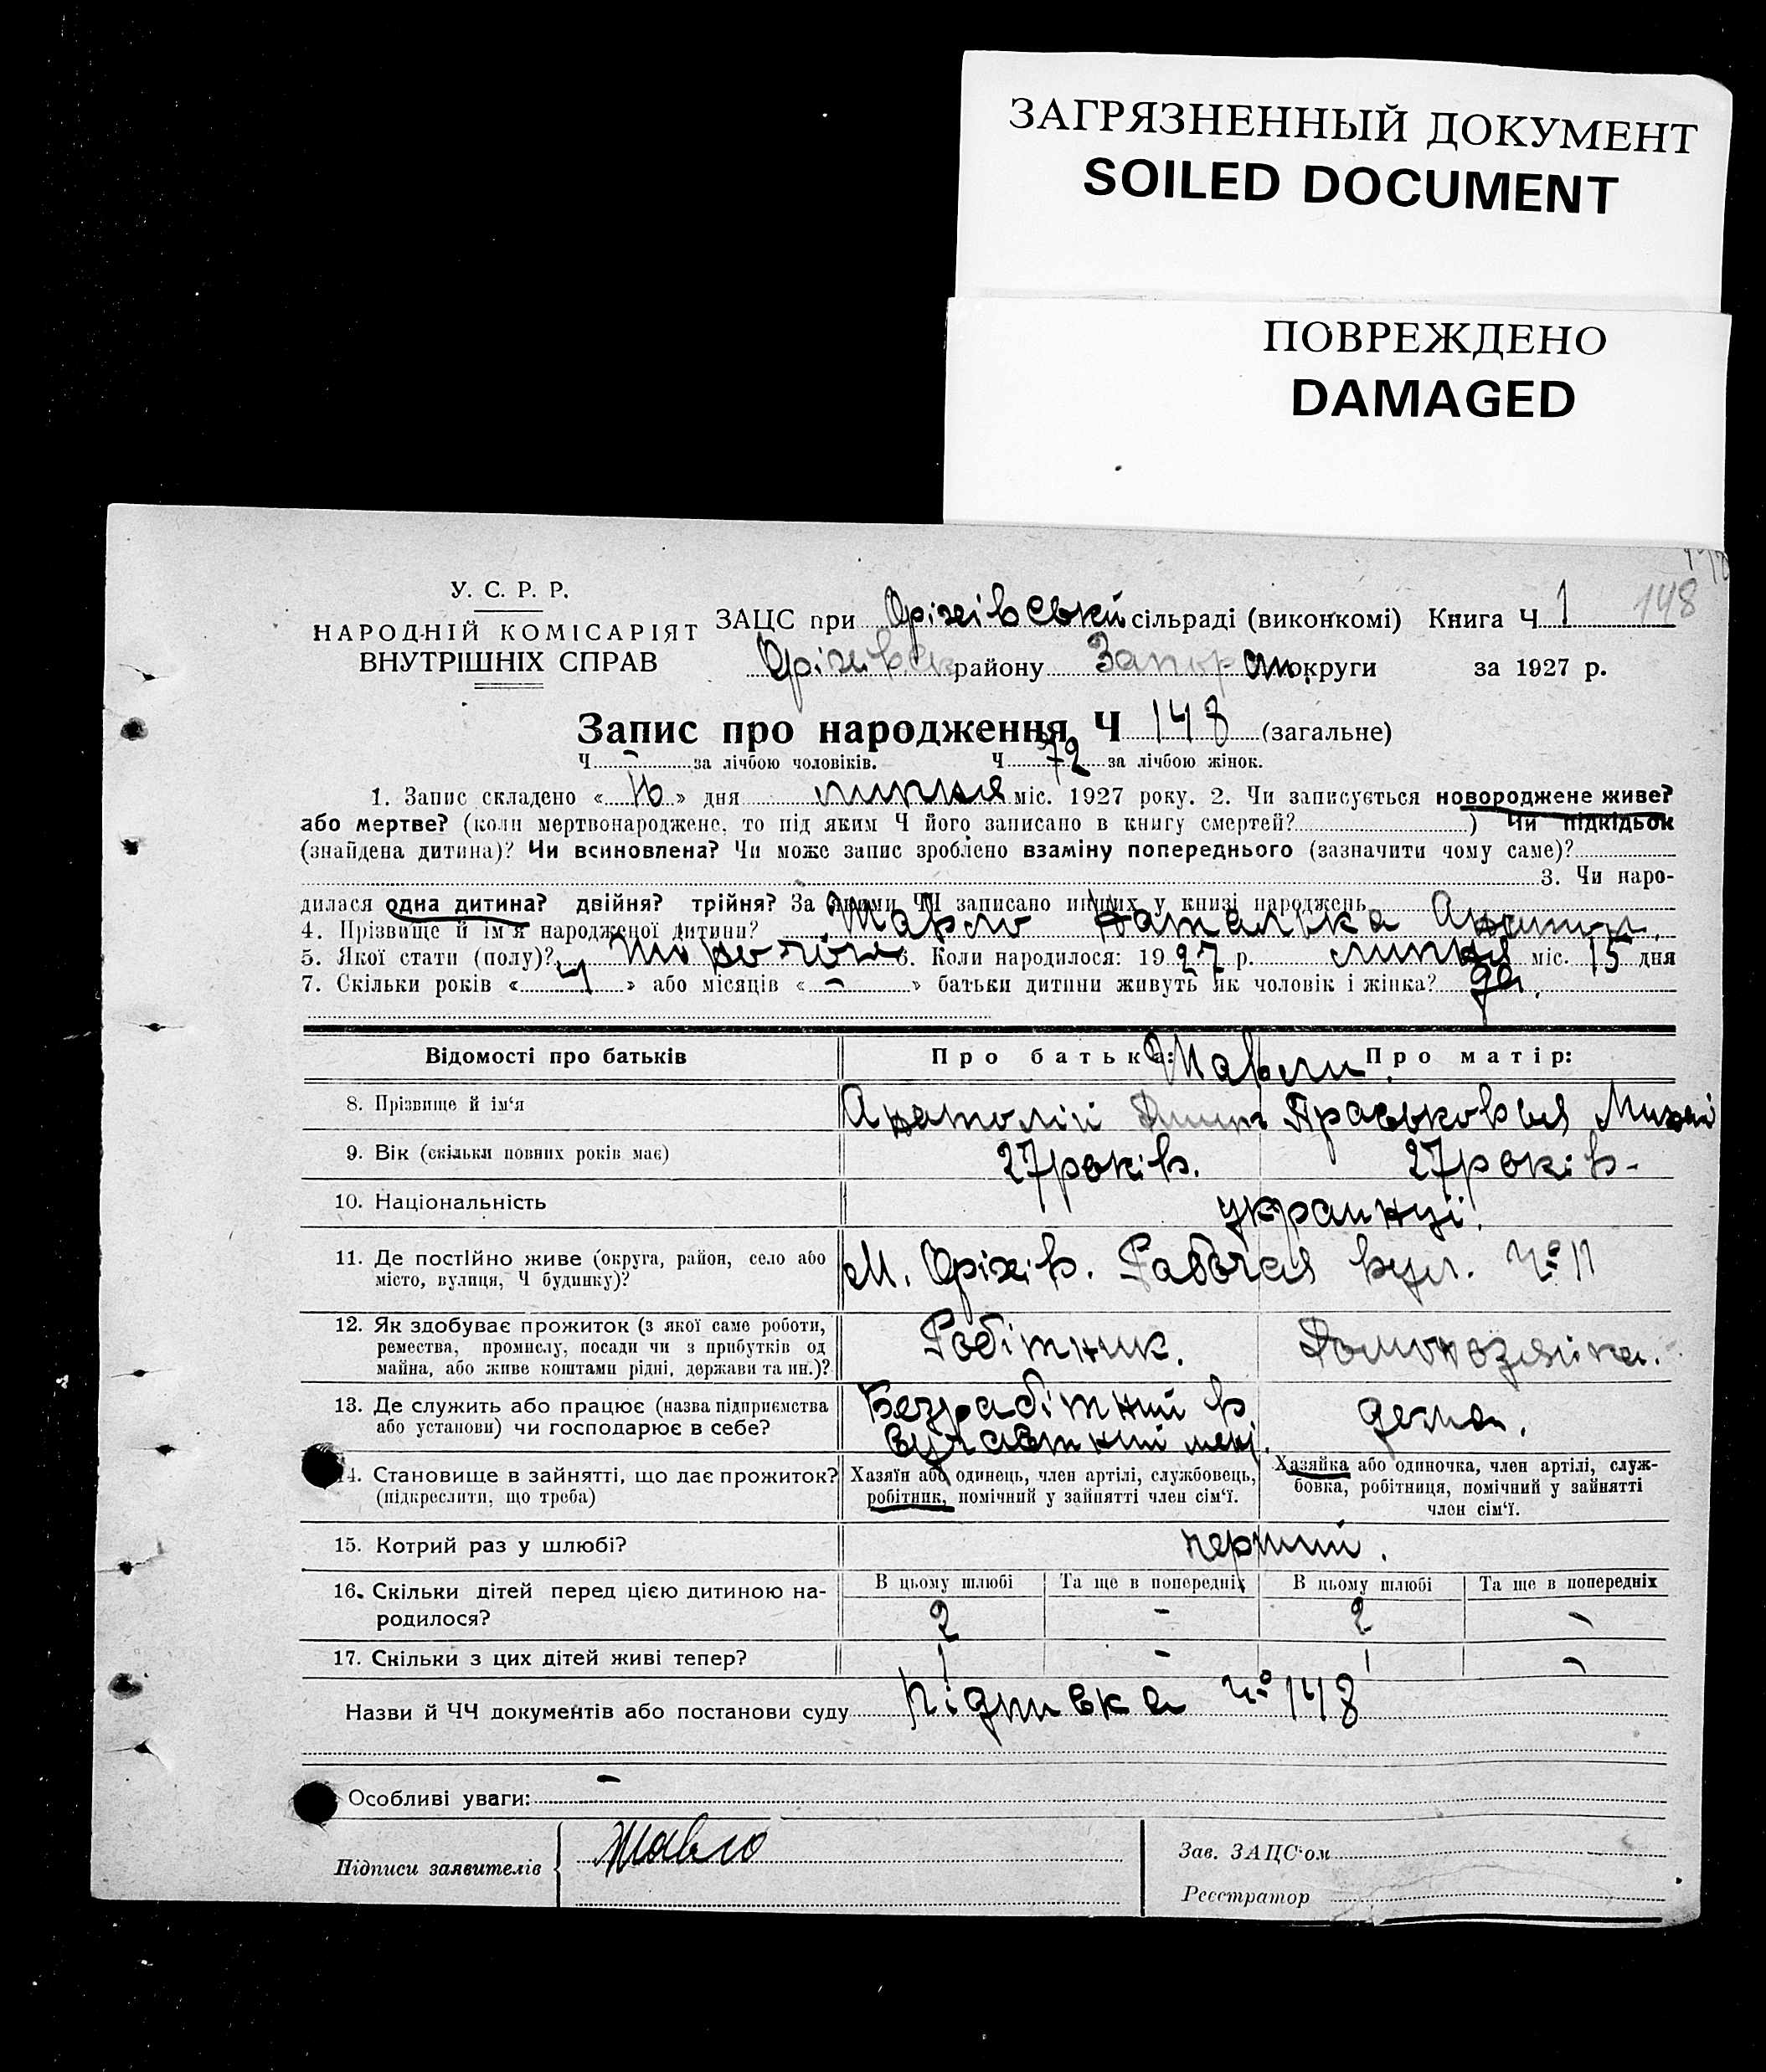 ЗАГРЯЗНЕННЫЙ ДОКУМЕНТ
SOILED DOCUMENT
ПОВРЕЖДЕНО
DAMAGED
148
У. С. Р. Р.
НАРОДНІЙ КОМІСАРІЯТ
ВНУТРІШНІХ СПРАВ
ЗАЦС при Оріхівській сільраді (виконкомі) Книга Ч 1
району округи за 1927 р.
Запис про народження Ч 148 (загальне)
Ч - за лічбою чоловіків. Ч 72 за лічбою жінок.
1. Запис складено « » дня липня міс. 1927 року. 2. Чи записується новороджене живе?
або мертве? (коли мертвонароджене, то під яким Ч його записано в книгу смертей? ) Чи підкідьок
(знайдена дитина)? Чи всиновлена? Чи може запис зроблено взаміну попереднього (зазначити чому саме)?
3. Чи наро-
дилася одна дитина? двійня? трійня? За якими ЧЧ записано инших у книзі народжень
4. Прізвище й ім'я народженої дитини? Наталька
5. Якої стати (полу)? 6. Коли народилося: 1927 р. липня міс. 15 дня
7. Скільки років « 4 » або місяців « - » батьки дитини живуть як чоловік і жінка? да.
Відомості про батьків Про батька: Про матір:
8. Прізвище й ім'я Анатолій Праськовья
9. Вік (скільки повних років має) 27 років. 27 років-
10. Національність украинці.
11. Де постійно живе (округа, район, село або М. Оріхів. Рабочая вул. №11
місто, вулиця, Ч будинку)?
12. Як здобуває прожиток (з якої саме роботи, Робітник. Домохозяйка.
ремества, промислу, посади чи з прибутків од
майна, або живе коштами рідні, держави та ин.)?
13. Де служить або працює (назва підприємства Безрабітний в дома.
або установи) чи господарює в себе?
14. Становище в зайнятті, що дає прожиток? Хазяїн або одинець, член артілі, службовець, Хазяйка або одиночка, член артілі, служ-
(підкреслити, що треба) робітник, помічний у зайнятті член сім'ї. бовка, робітниця, помічний у зайнятті
член сім'ї.
15. Котрий раз у шлюбі? перший.
16. Скільки дітей перед цією дитиною на- В цьому шлюбі Та ще в попередніх В цьому шлюбі Та ще в попередніх
родилося? 2 - 2 -
17. Скільки з цих дітей живі тепер? 1 - 1 -
Назви й ЧЧ документів або постанови суду №148
Особливі уваги: -
Підписи заявителів
Зав. ЗАЦС'ом
Реєстратор